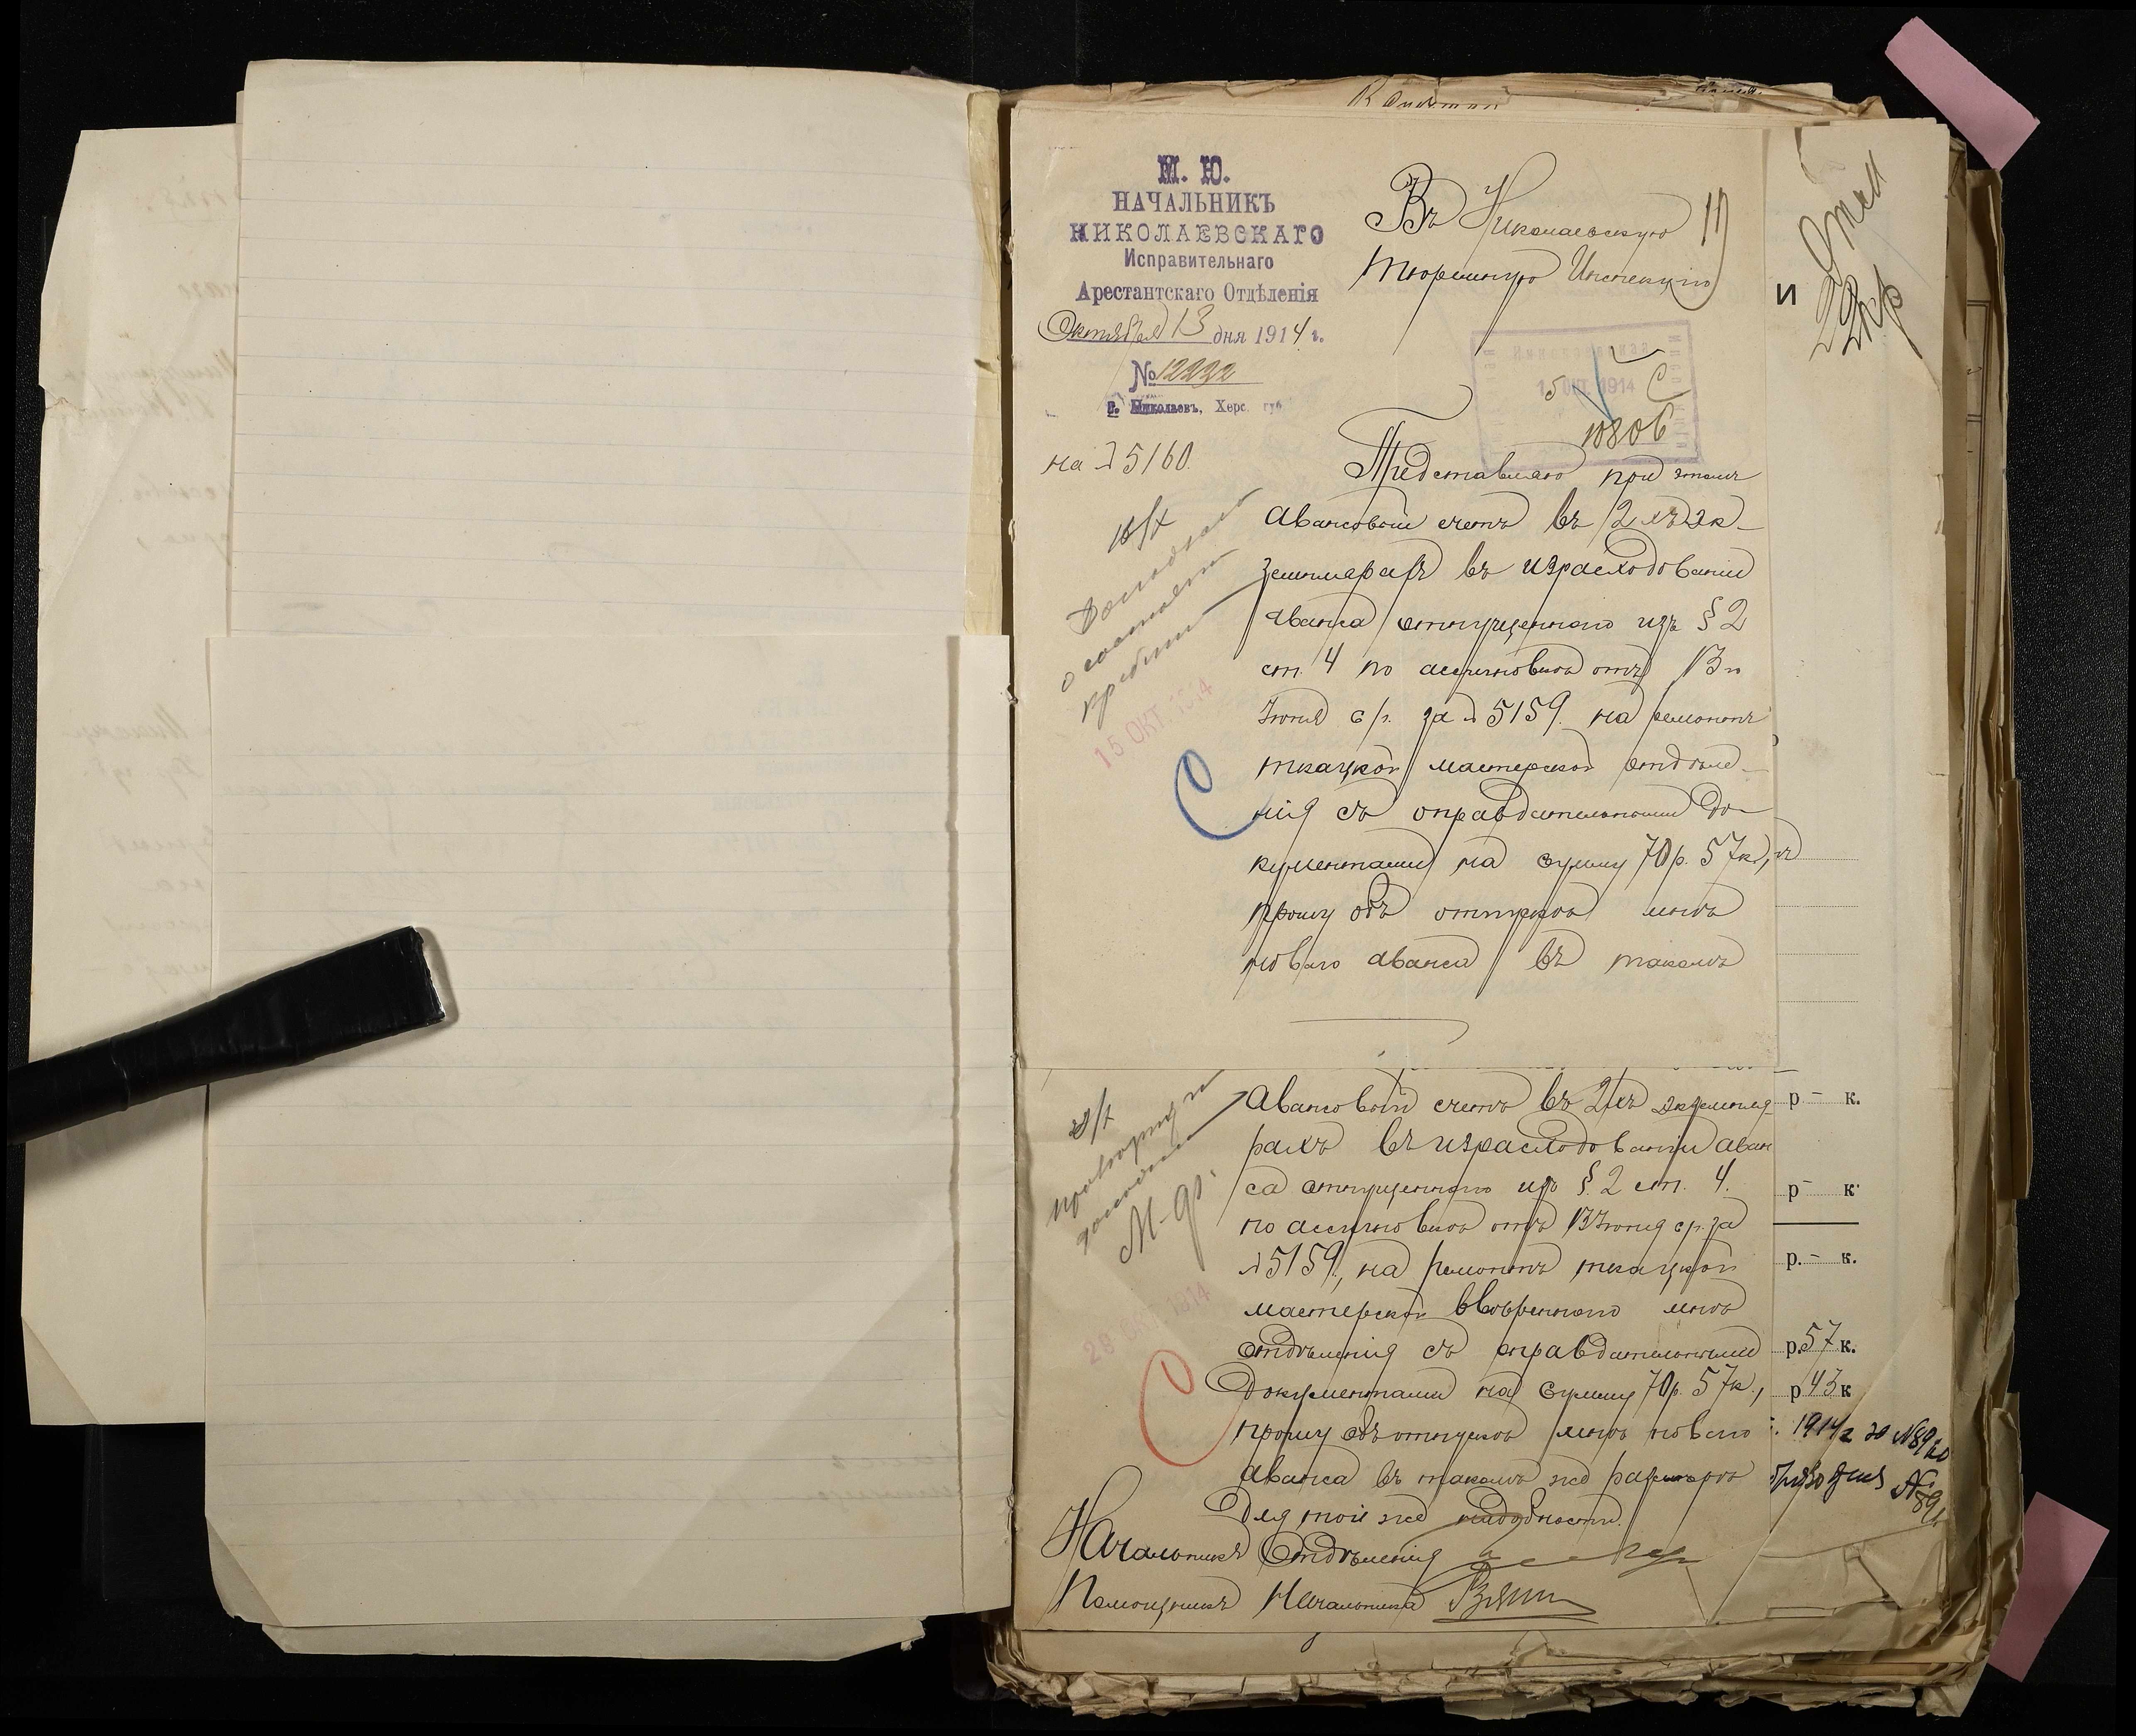 М. Ю.
НАЧАЛЬНИКЪ
НИКОЛАЕВСКАГО
Исправительнаго
Арестантскаго Отдѣленія
Октября 13 дня 1914 г.
№ 12232
г. Николаевъ, Херс. губ.
на № 5160.
Въ Николаевскую
Тюремную Инспекцію
15 ОКТ 1914
10806
Представляю при этомъ
авансовый счетъ въ 2хъ эк-
земплярахъ въ израсходованіи
аванса отпущеннаго изъ § 2
ст. 4 по ассигновкѣ отъ 13го
Іюня с/г. за № 5159. на ремонтъ
ткацкой мастерской отдѣле-
нія съ оправдательными до-
кументами на сумму 70 р. 57 к., и
прошу объ отпускѣ мнѣ
новаго аванса въ такомъ
15 ОКТ 1914
авансовый счетъ въ 2хъ экземпля-
рахъ въ израсходованіи аван
са отпущеннаго изъ § 2 ст. 4.
по ассигновкѣ отъ 13 Іюня с/г. за
№ 5159., на ремонтъ ткацкой
мастерской ввѣреннаго мнѣ
отдѣленія съ оправдательными
документами на сумму 70 р. 57 к.,
прошу объ отпускѣ мнѣ новаго
аванса въ такомъ же размѣрѣ
для той же надобности.
Начальникъ Отдѣленія
Помощникъ Начальника
и
р - к.
р - к.
р. - к.
р. 57 к.
р 43 к
1914 г за №